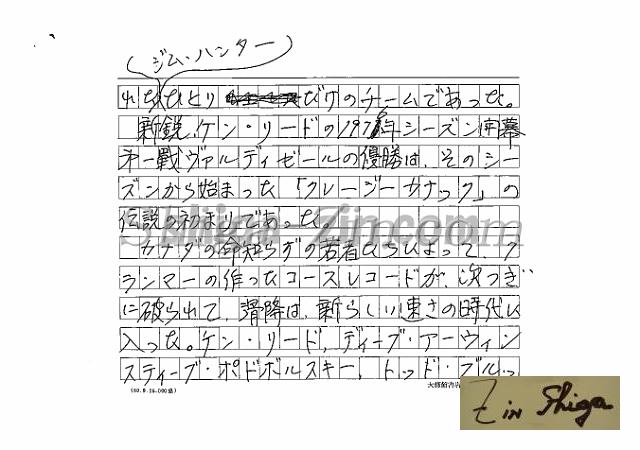 (ジム・ハンター)
れたひとりだけのチームであった。
新鋭、ケン・リードの1975年シーズン開幕
第一戦ヴァルディゼールの優勝は、そのシー
ズンから始まった「クレージーカナック」の
伝説の初まりであった。
カナダの命知らずの若者たちによって、ク
ランマーの作ったコースレコードが、次つぎ
に破られて、滑降は、新らしい速さの時代に
入った。ケン・リード、ディーブ・アーウィン
スティーブ・ポドボルスキー、トッド・ブルッ
(60.9.25-000集)
大修館書店
Z in Shiga